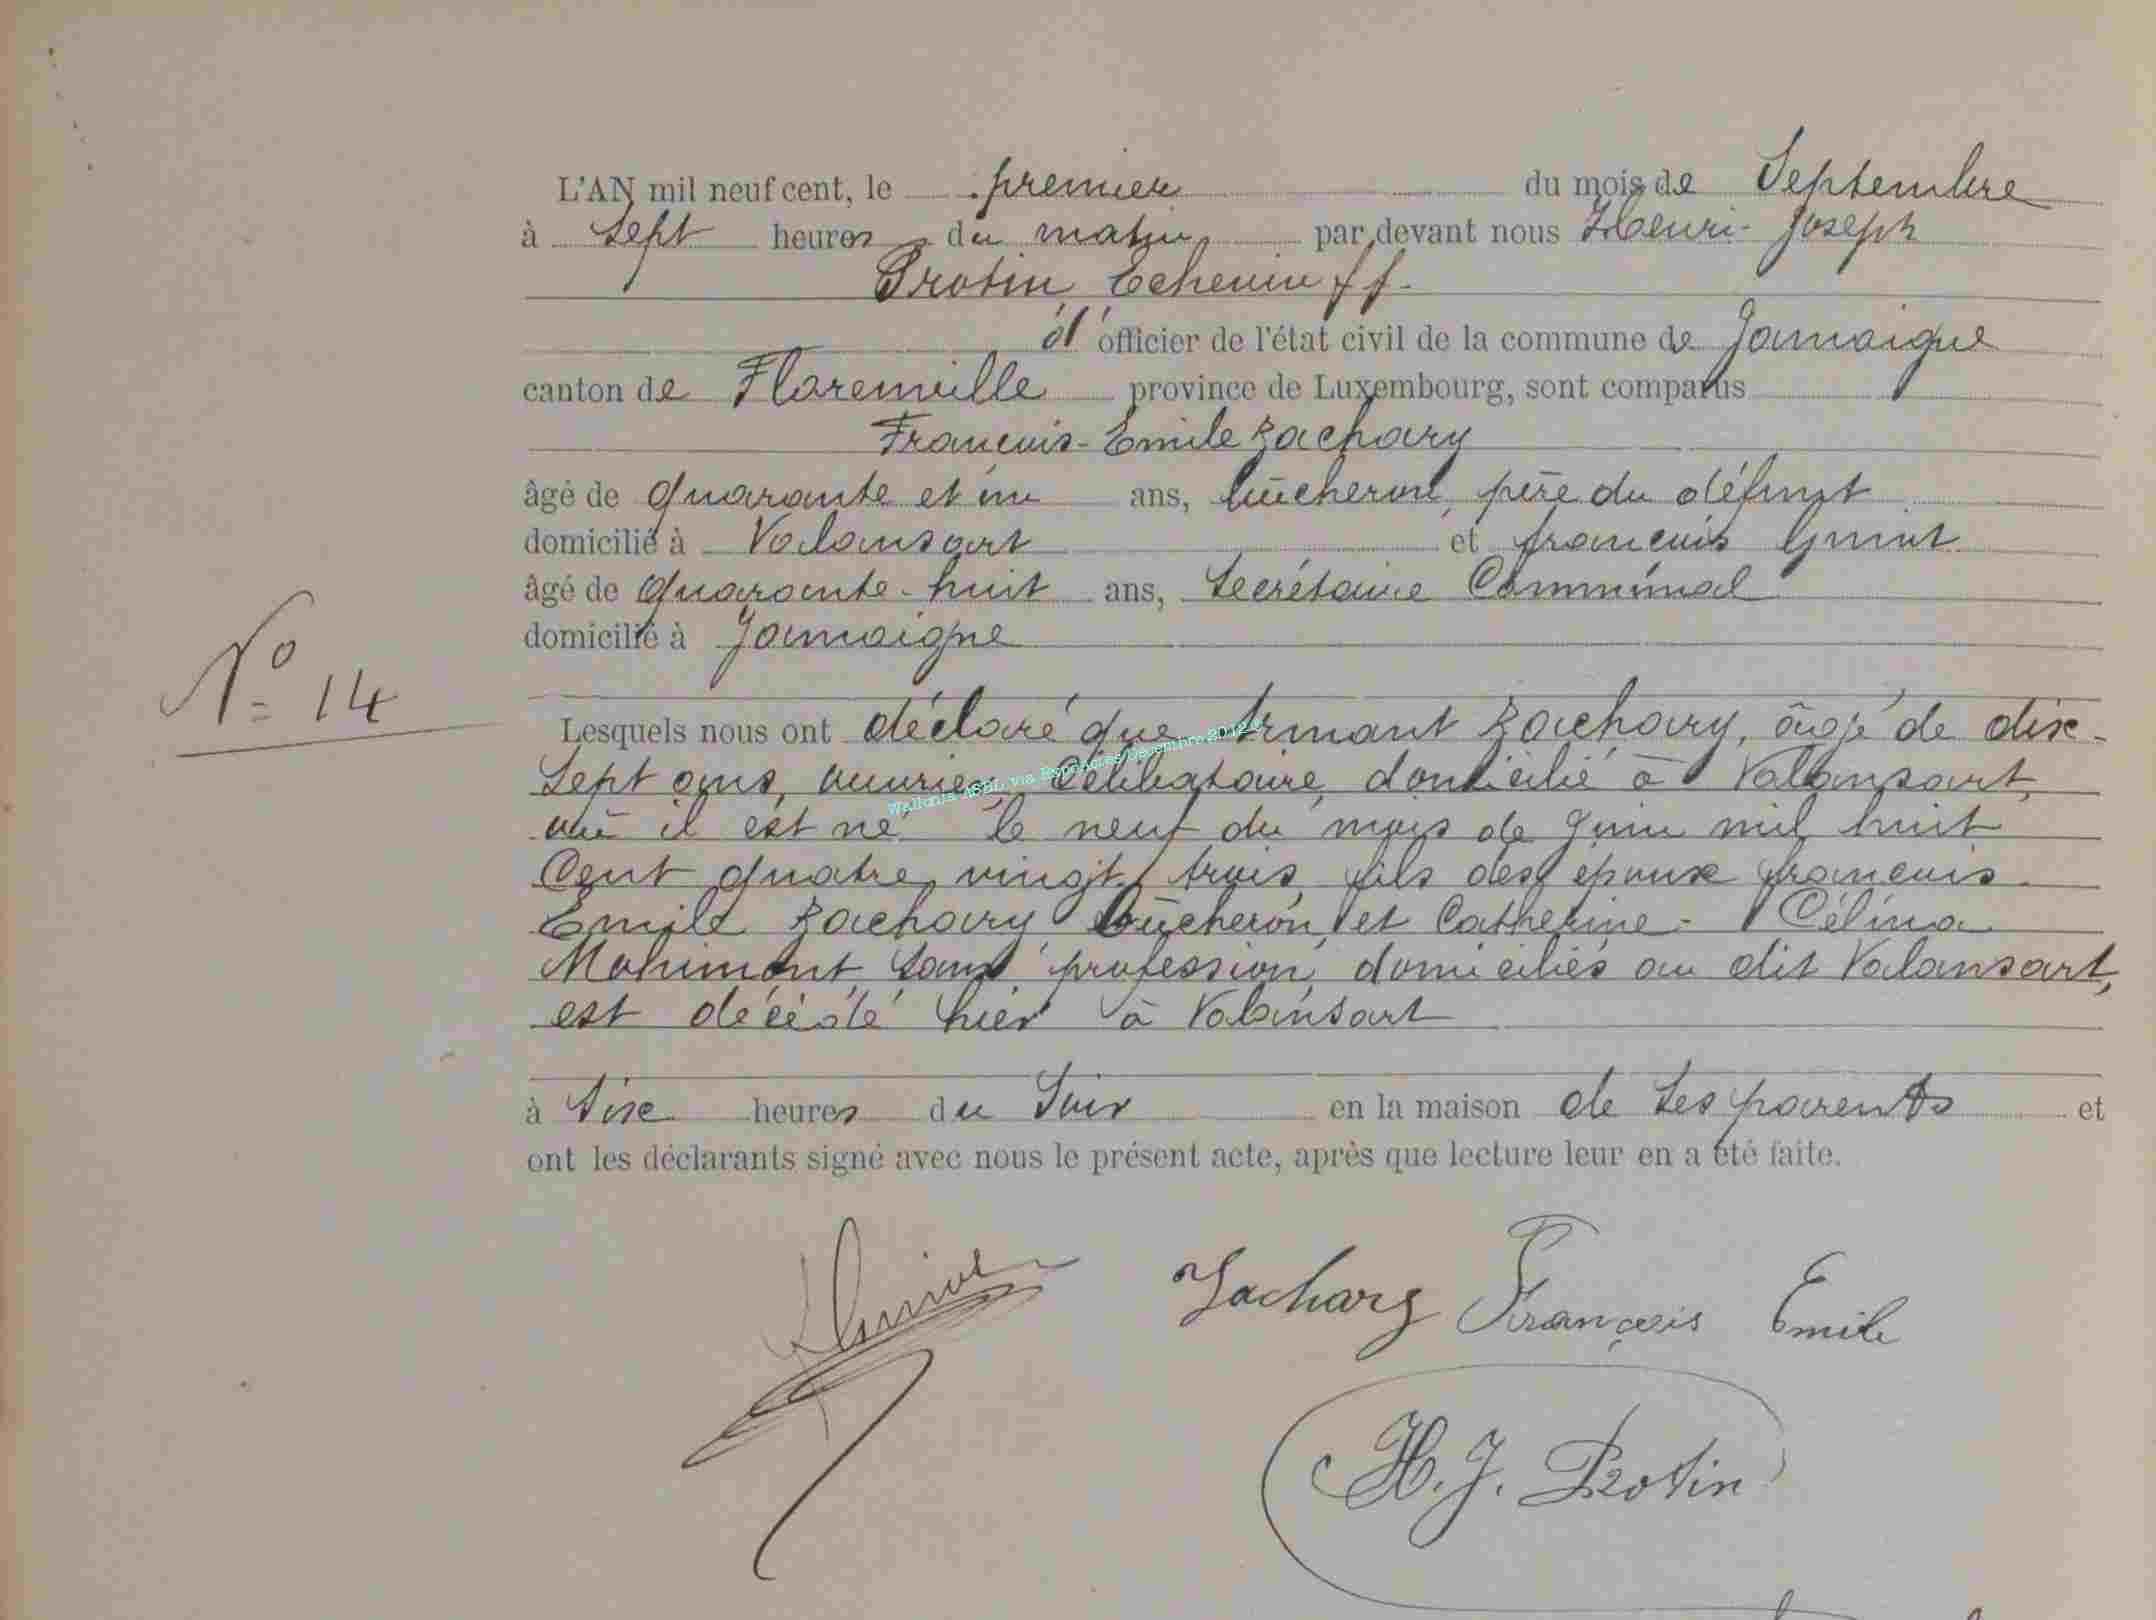 L'AN mil neuf cent, le premier du mois de Septembre
à Sept heures du matin, par devant nous Henri-Joseph
Protin, Echevin ff.
d'officier de l'état civil de la commune de Jamoigne
canton de Florenville province de Luxembourg, sont comparus
Francois-Emile Zachary
âgé de quarante et un ans, bûcheron, père du défunt
domicilié à Valansart et francois
âgé de quarante-huit ans, Secrétaire Communal
domicilié à Jamoigne
No 14
Lesquels nous ont déclaré que Armant Zachary, âgé de dix-
Sept ans, ouvrier, Célibataire, domicilié à Valansart,
où il est né le neuf du mois de Juin mil huit
Cent quatre vingt trois, fils des epoux francois-
Emile Zachary bûcheron, et Catherine-Célina
Mohimont, Sans profession, domiciliés au dit Valansart,
est décédé hier à Valansart
à Six heures du Soir en la maison de Ses parents et
ont les déclarants signé avec nous le présent acte, après que lecture leur en a été faite.
Zachary François Emile
H. J. Protin
Wallonia ASBL via ExpoActes Décembre 2012 ©